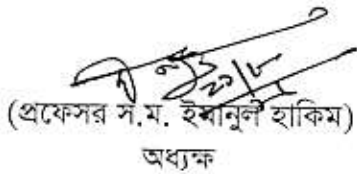 (প্রফেসর স.ম. ইমানুল হাকিম)
অধ্যক্ষ